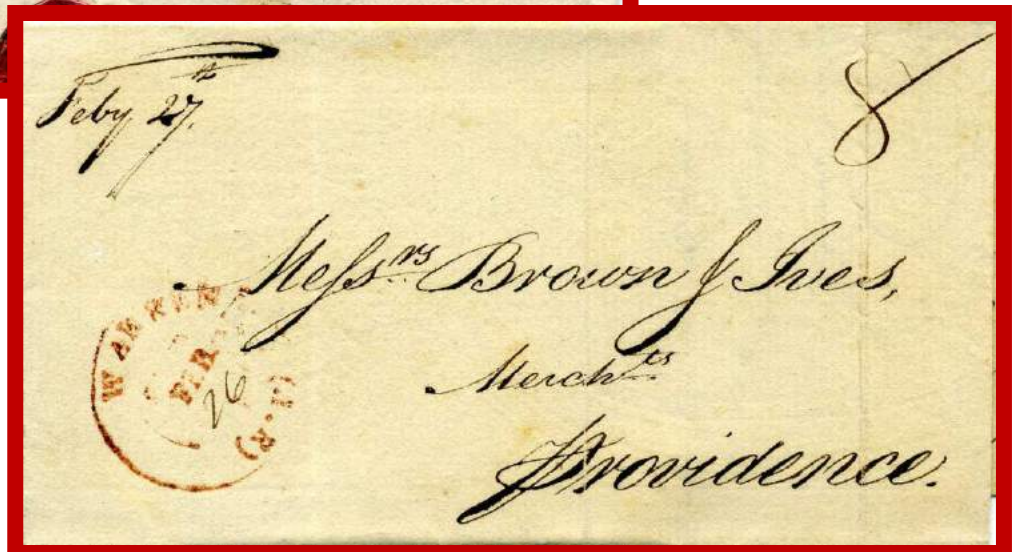 Feby 27th
8
Messrs Brown & Ives,
Merchts
Providence.
WARREN
FEB
26
(R.I)